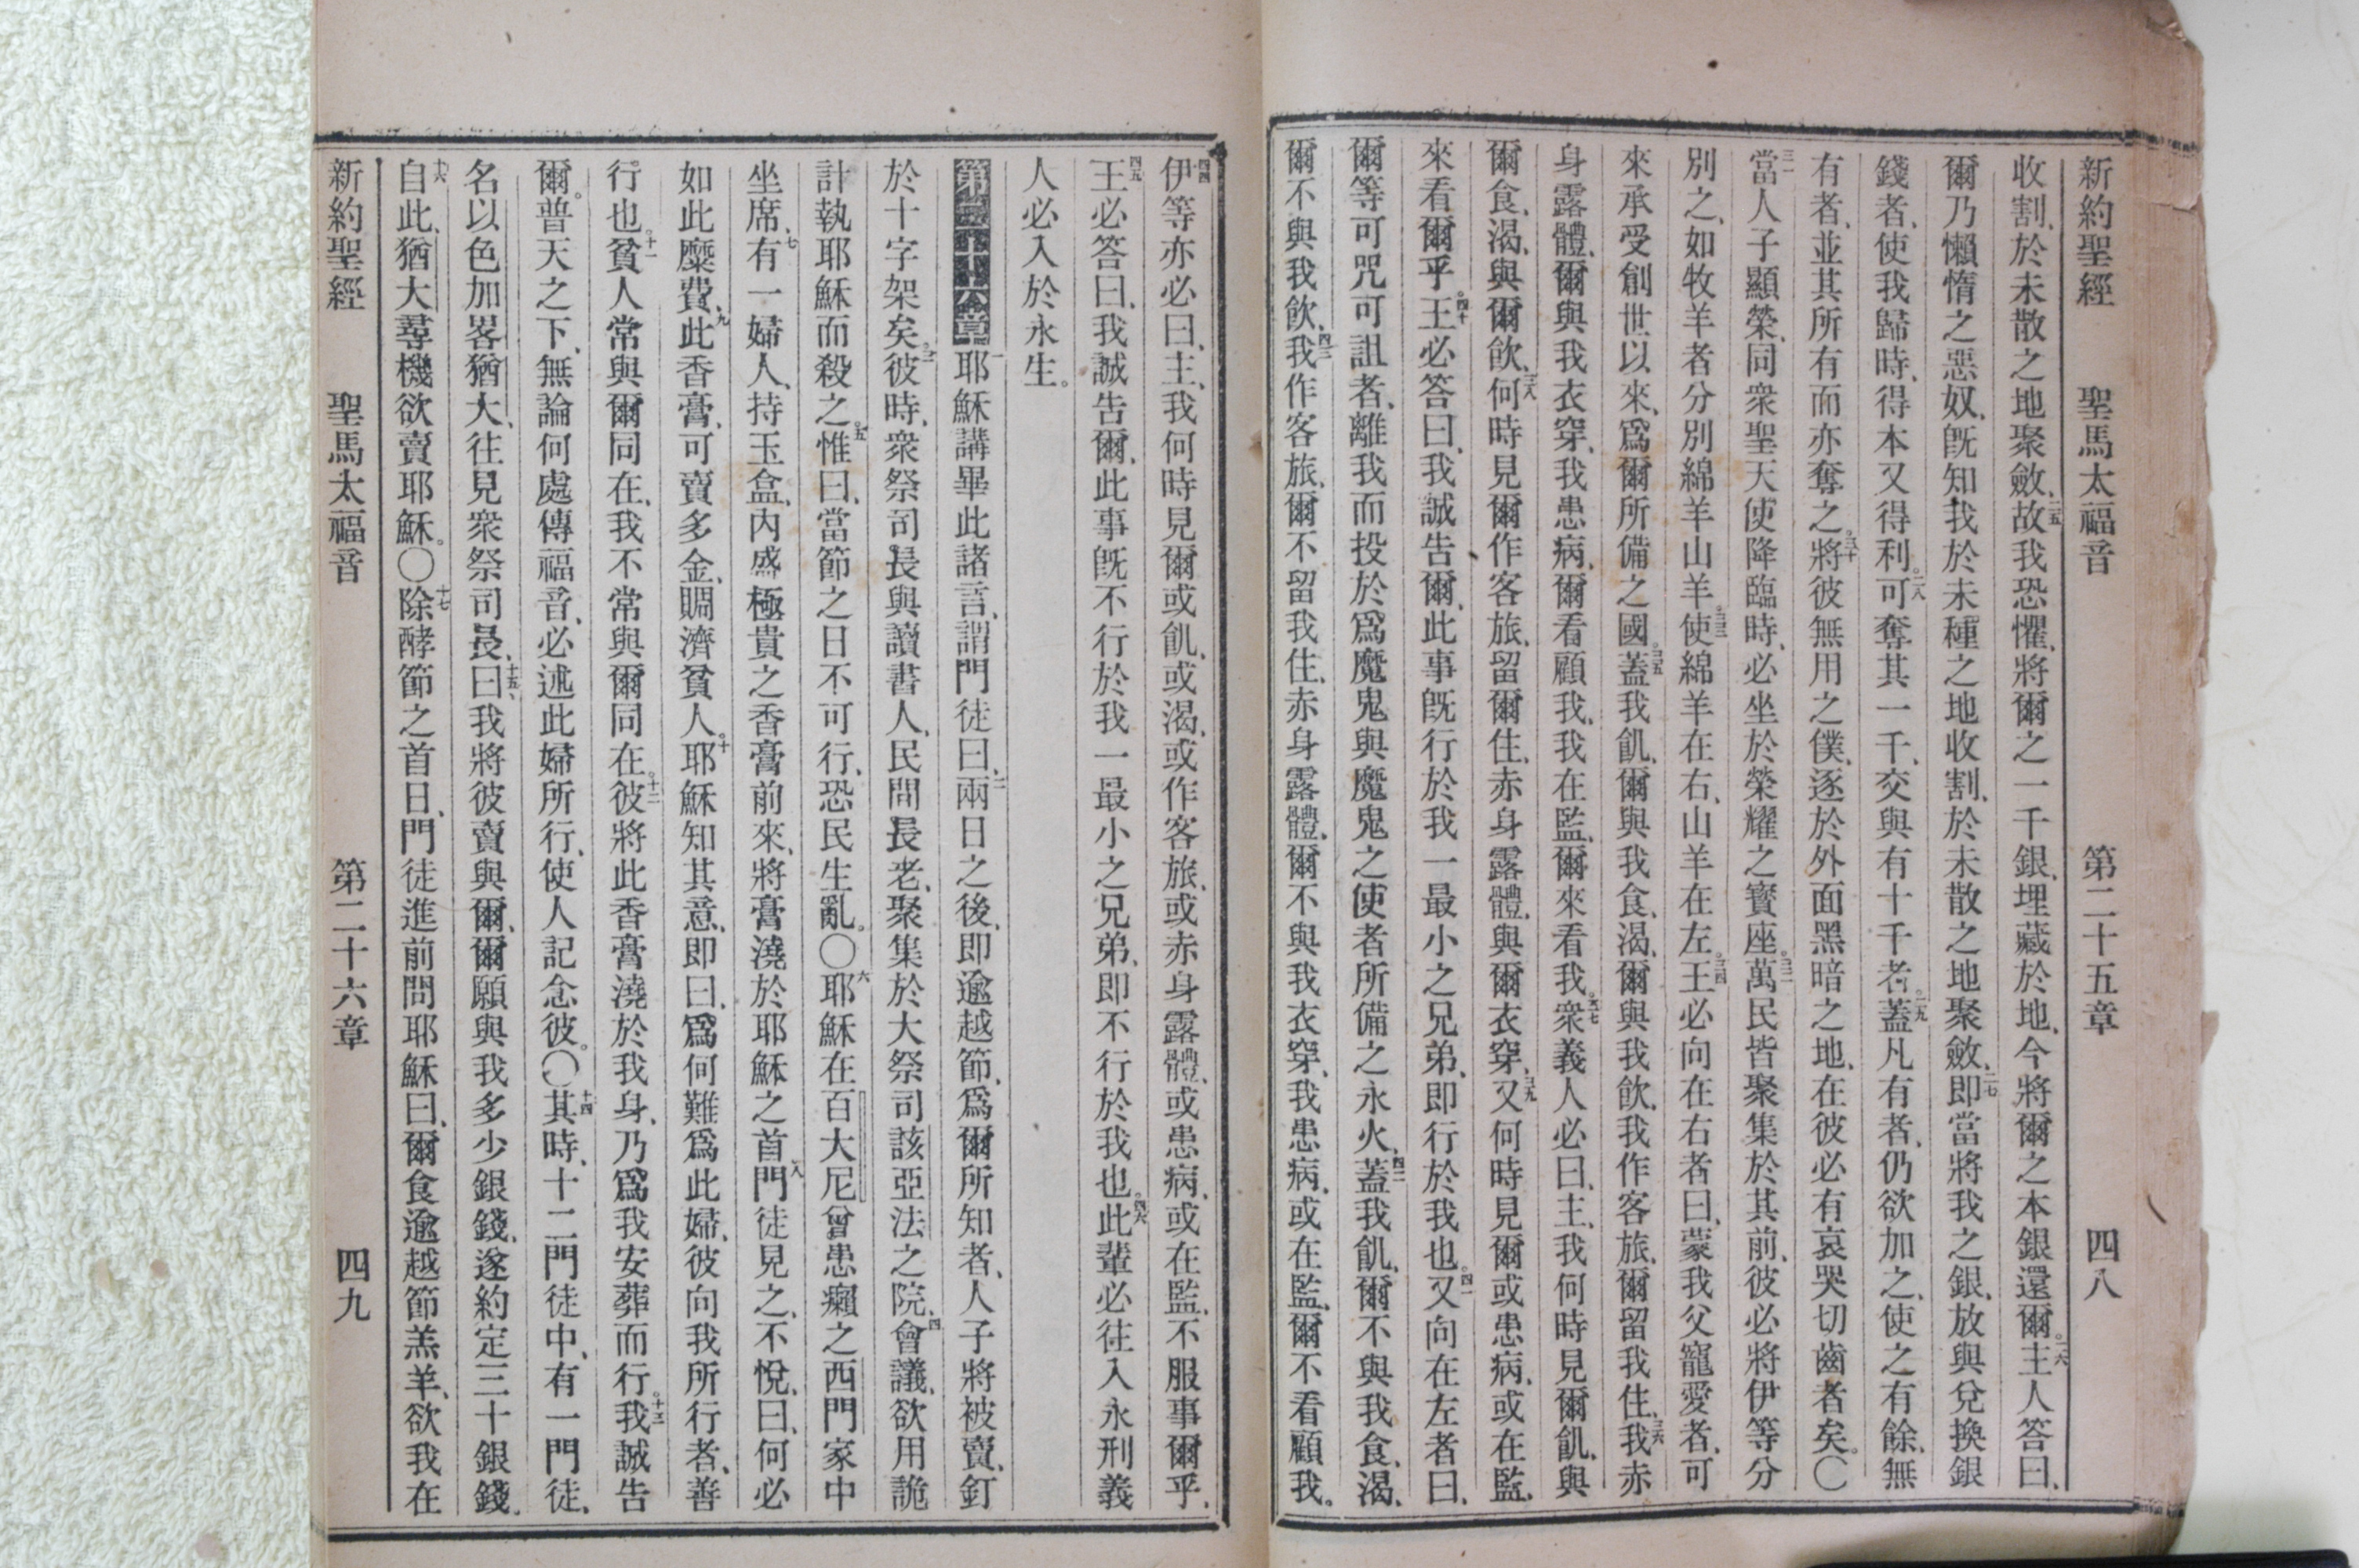 新約聖經 聖馬太福音 第二十五章 四八
收割、於未散之地聚斂、二五故我恐懼、將爾之一千銀、埋藏於地、今將爾之本銀還爾。二六主人答曰、
爾乃懶惰之惡奴、旣知我於未種之地收割、於未散之地聚斂、二七即當將我之銀、放與兌換銀
錢者、使我歸時、得本又得利。二八可奪其一千、交與有十千者。二九蓋凡有者、仍欲加之、使之有餘、無
有者、並其所有而亦奪之。三十將彼無用之僕、逐於外面黑暗之地、在彼必有哀哭切齒者矣。〇
三一當人子顯榮、同衆聖天使降臨時、必坐於榮耀之寶座。三二萬民皆聚集於其前、彼必將伊等分
別之、如牧羊者分別綿羊山羊。三三使綿羊在右、山羊在左。三四王必向在右者曰、蒙我父寵愛者、可
來承受創世以來、爲爾所備之國。三五蓋我飢、爾與我食、渴、爾與我飲、我作客旅、爾留我住、三六我赤
身露體、爾與我衣穿、我患病、爾看顧我、我在監、爾來看我。三七衆義人必曰、主、我何時見爾飢、與
爾食、渴、與爾飲、三八何時見爾作客旅、留爾住、赤身露體、與爾衣穿、三九又何時見爾或患病、或在監、
來看爾乎。四十王必答曰、我誠告爾、此事旣行於我一最小之兄弟、即行於我也。四一又向在左者曰、
爾等可咒可詛者、離我而投於爲魔鬼與魔鬼之使者所備之永火、四二蓋我飢、爾不與我食、渴、
爾不與我飲、四三我作客旅、爾不留我住、赤身露體、爾不與我衣穿、我患病、或在監、爾不看顧我。
四四伊等亦必曰、主、我何時見爾或飢、或渴、或作客旅、或赤身露體、或患病、或在監、不服事爾乎、
四五王必答曰、我誠告爾、此事旣不行於我一最小之兄弟、即不行於我也。四六此輩必往入永刑義
人必入於永生。
第二十六章 一耶穌講畢此諸言、謂門徒曰、二兩日之後、即逾越節、爲爾所知者、人子將被賣、釘
於十字架矣。三彼時、衆祭司長與讀書人、民間長老、聚集於大祭司該亞法之院、四會議、欲用詭
計執耶穌而殺之。五惟曰、當節之日不可行、恐民生亂。〇六耶穌在百大尼曾患癩之西門家中
坐席、七有一婦人、持玉盒、內盛極貴之香膏前來、將膏澆於耶穌之首、八門徒見之、不悅、曰、何必
如此糜費、九此香膏、可賣多金、賙濟貧人。十耶穌知其意、即曰、爲何難爲此婦、彼向我所行者、善
行也。十一貧人常與爾同在、我不常與爾同在。十二彼將此香膏澆於我身、乃爲我安葬而行。十三我誠告
爾。普天之下、無論何處傳福音、必述此婦所行、使人記念彼。〇十四其時、十二門徒中、有一門徒、
名以色加畧猶大、往見衆祭司長、十五曰、我將彼賣與爾、爾願與我多少銀錢、遂約定三十銀錢、
十六自此、猶大尋機欲賣耶穌。〇十七除酵節之首日、門徒進前問耶穌曰、爾食逾越節羔羊、欲我在
新約聖經 聖馬太福音 第二十六章 四九